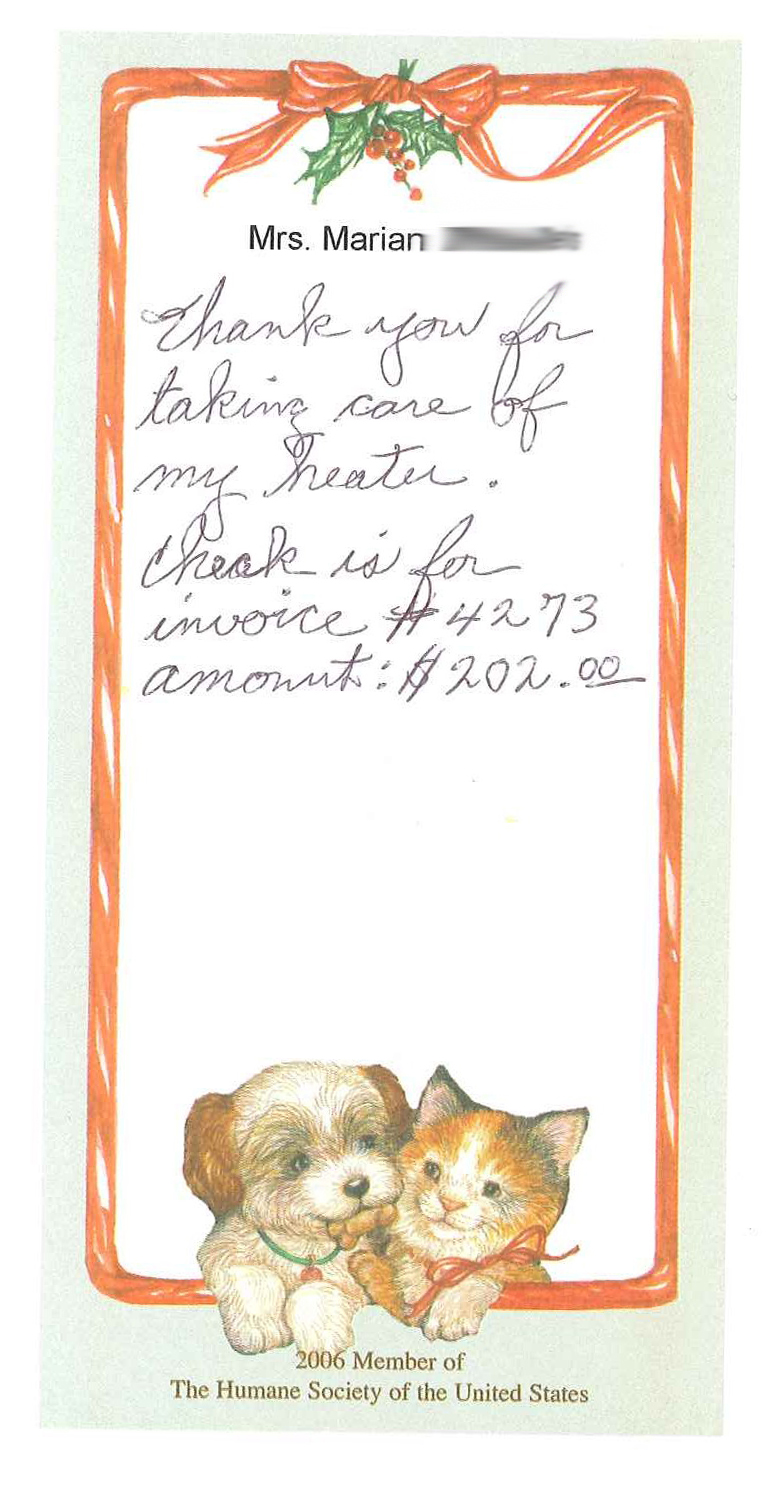 Mrs. Marian
Thank you for
taking care of
my heater.
Check is for
invoice #4273
amount: $202.00
2006 Member of
The Humane Society of the United States